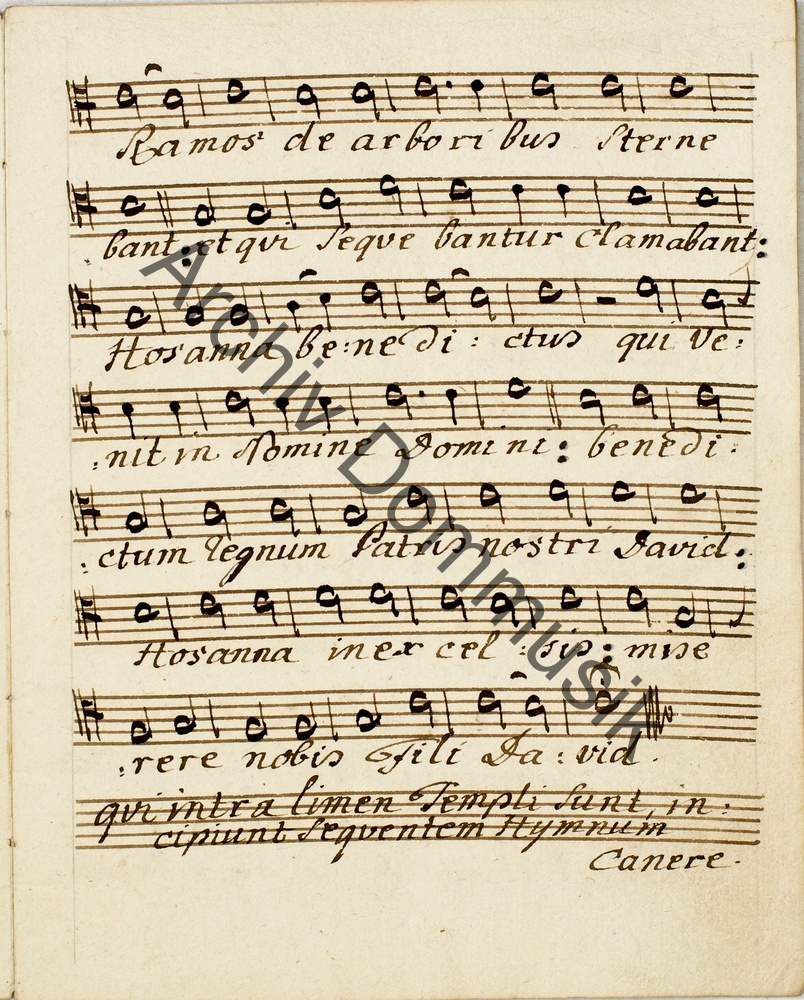 Ramos de arboribus sterne
bant: et qui seque bantur Clamabant:
Hosanna be:nedi: ctus qui ve:
:nit in Nomine Domini: benedi.
:ctum regnum Patris nostri David:
Hosanna in ex cel: sis: mise
:rere nobis Fili Da:vid.
qui intra limen Templi sunt, in:
cipiunt sequentem Hymnum
Canere.
Archiv Dommusik